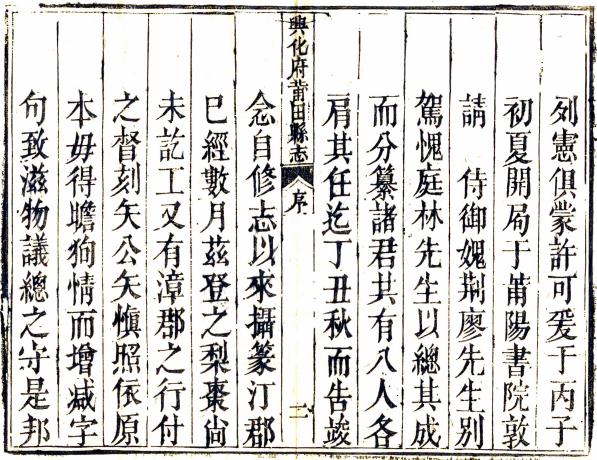 列憲俱蒙許可爰于丙子
初夏開局于莆陽書院敦
請　侍御媿荆廖先生別
駕愧庭林先生以總其成
而分纂諸君共有八人各
肩其任迄丁丑秋而告竣
興化府莆田縣志　序　二
念自修志以來攝篆汀郡
巳經數月茲登之梨棗尚
未訖工又有漳郡之行付
之督刻矢公矢慎照依原
本毋得瞻狗情而增減字
句致滋物議總之守是邦